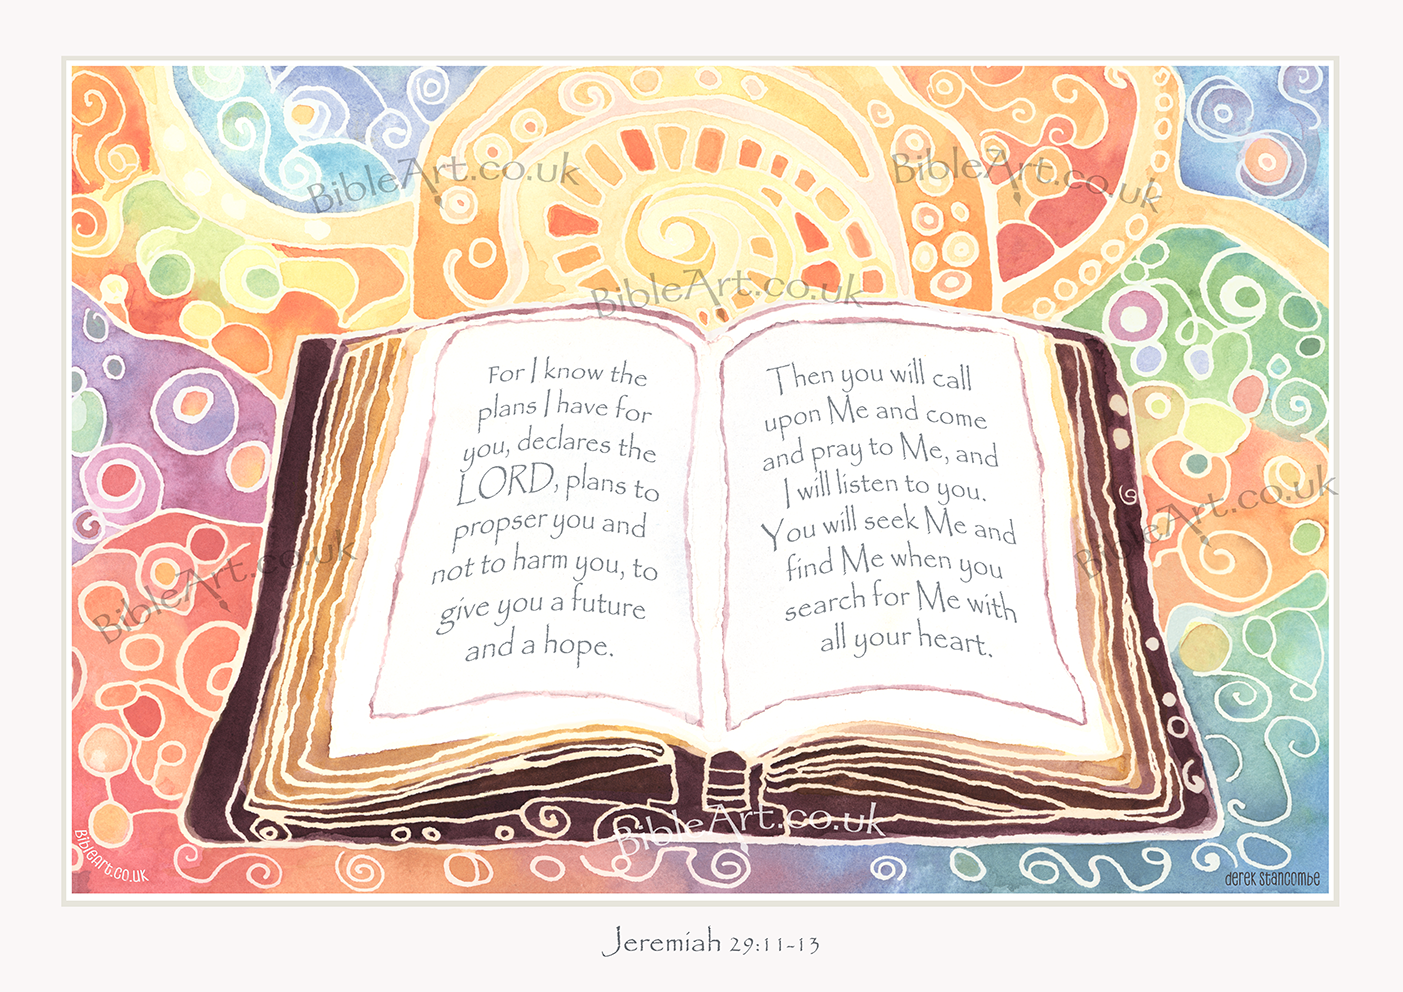 BibleArt.co.uk
BibleArt.co.uk
BibleArt.co.uk
For I know the
plans I have for
you, declares the
LORD, plans to
propser you and
not to harm you, to
give you a future
and a hope.
Then you will call
upon Me and come
and pray to Me, and
I will listen to you.
You will seek Me and
find Me when you
search for Me with
all your heart.
BibleArt.co.uk
BibleArt.co.uk
BibleArt.co.uk
BibleArt.co.uk
derek stancombe
Jeremiah 29:11-13